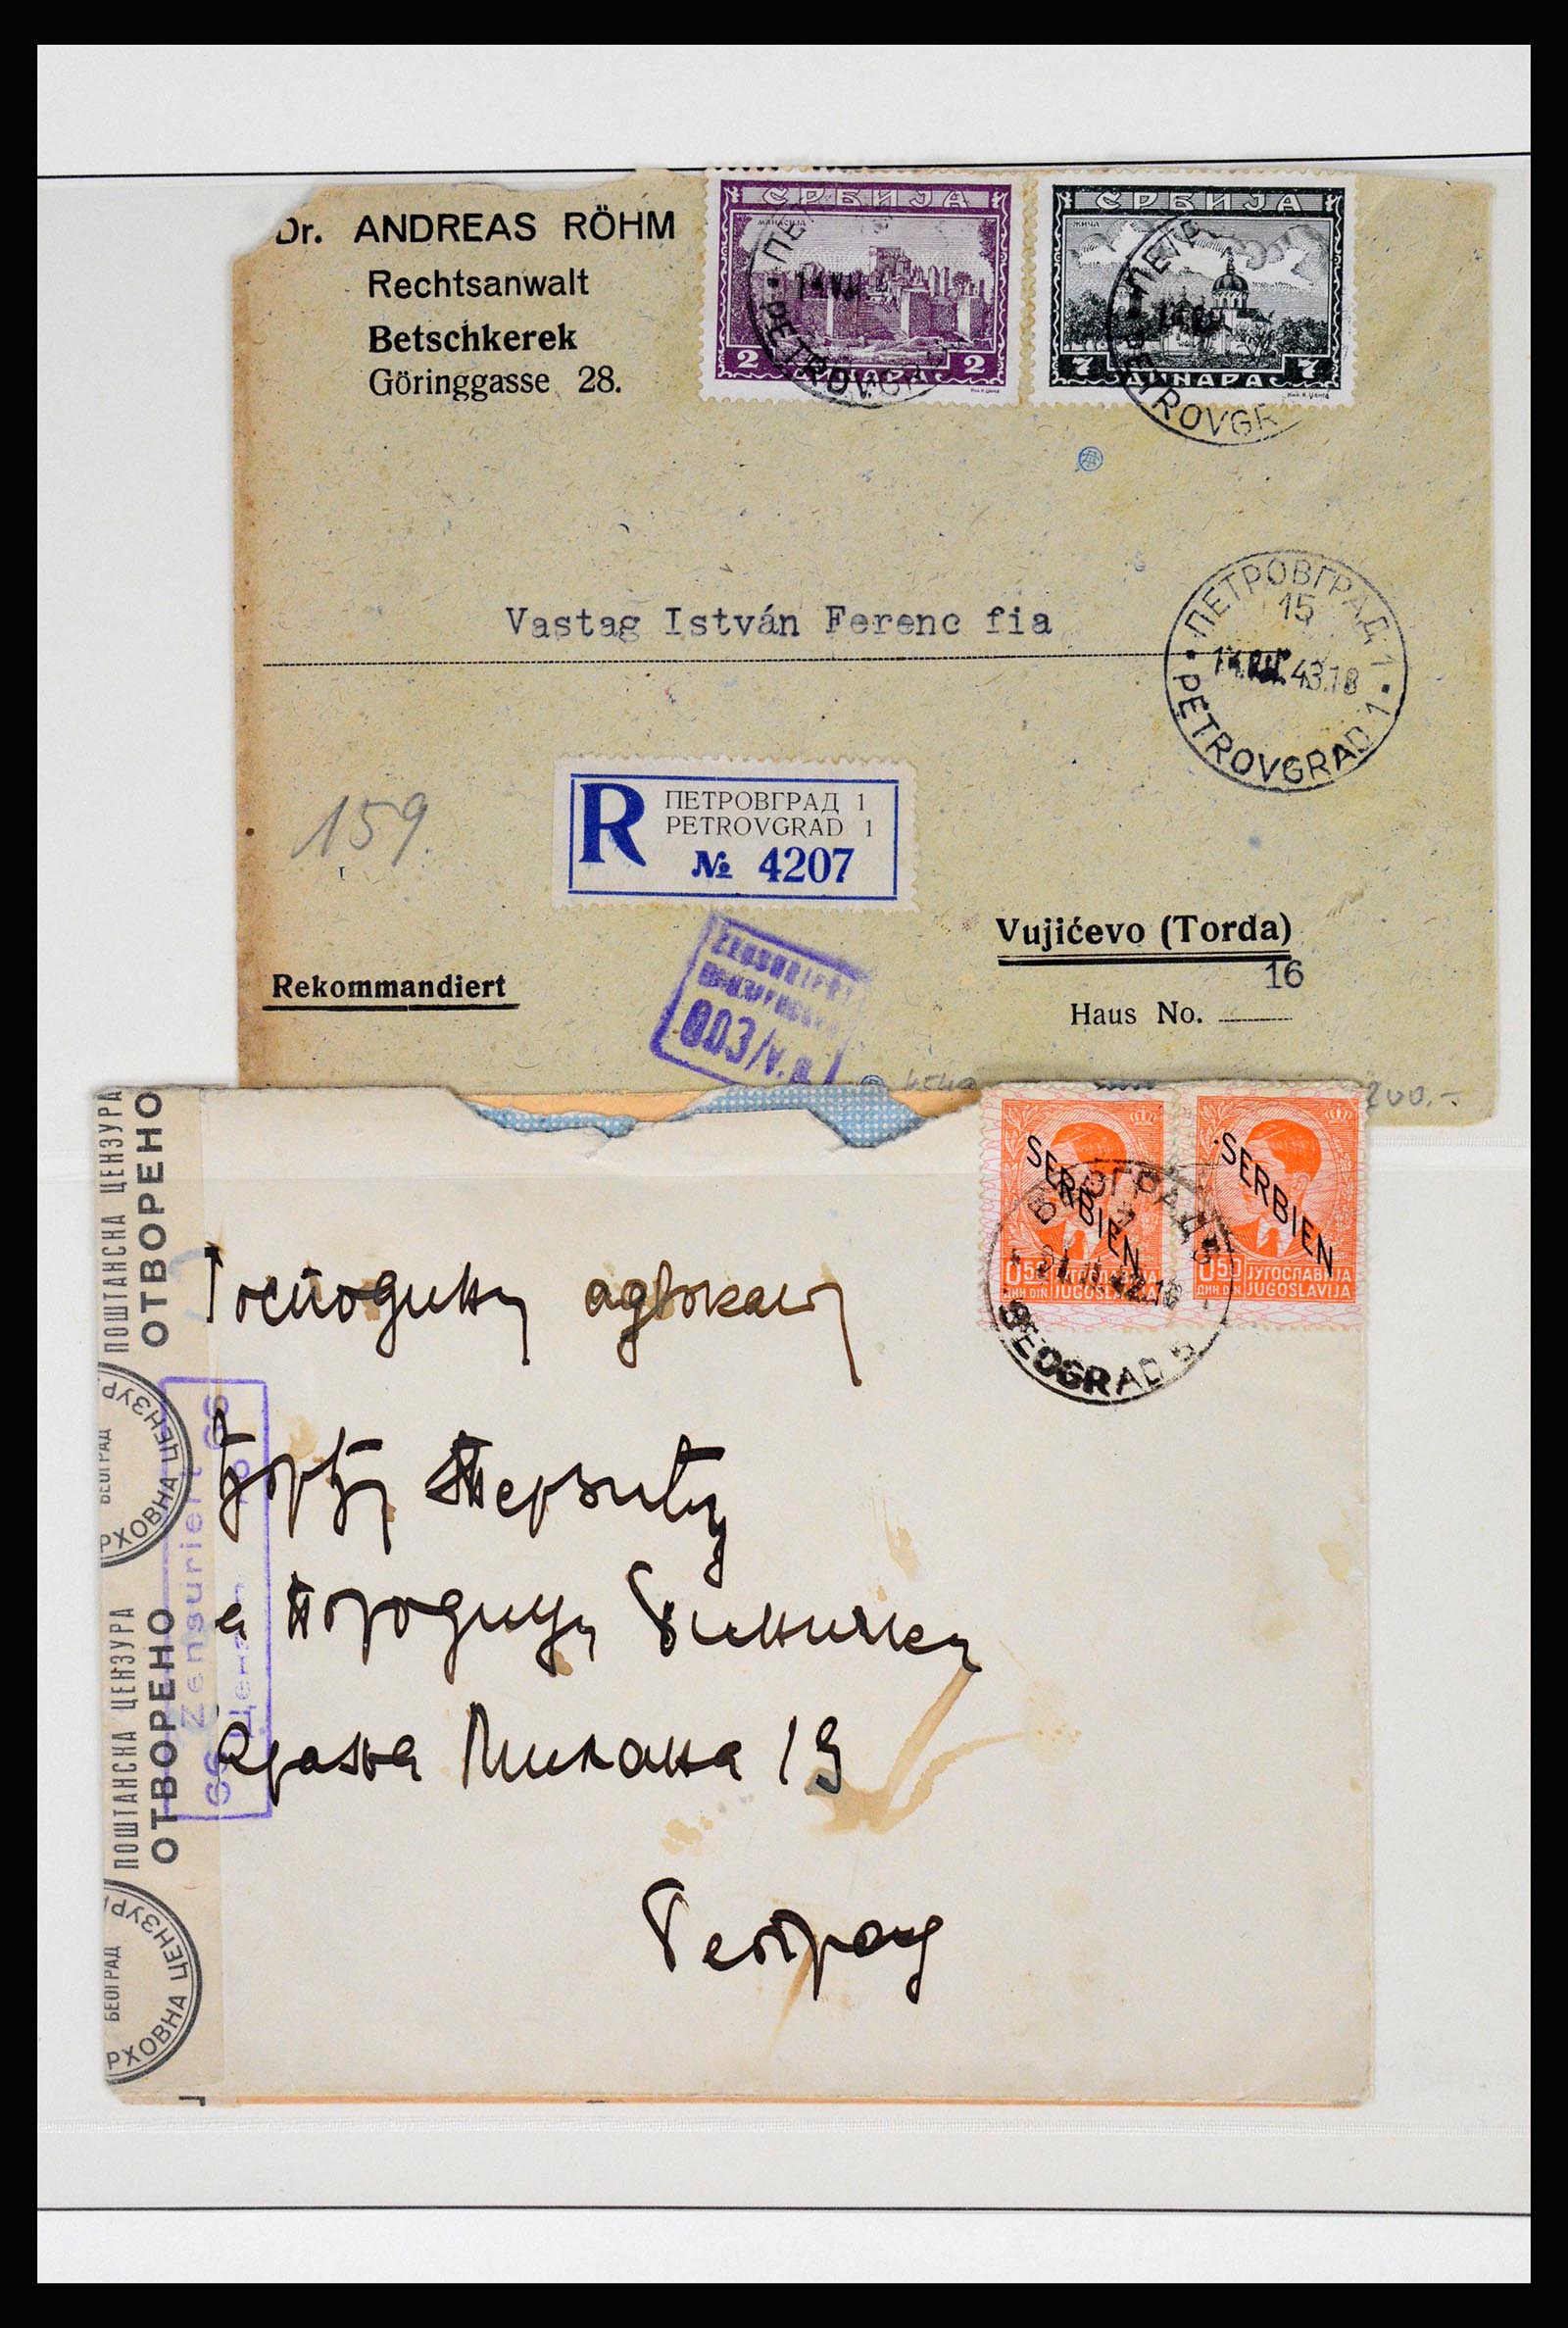 Dr. ANDREAS RÖHM
Rechtsanwalt
Betschkerek
Göringgasse 28.
СРБИЈА
МАНАСИЈА
2 ДИНАРА 2
СРБИЈА
ЖИЧА
7 ДИНАРА 7
PETROVGRAD
PETROVGR
Vastag István Ferenc fia
ПЕТРОВГРАД 1
15
43.18
PETROVGRAD 1
159.
R
ПЕТРОВГРАД 1
PETROVGRAD 1
№ 4207
003/V.
Vujićevo (Torda)
16
Haus No.
Rekommandiert
200.-
SERBIEN
0.50 ЈУГОСЛАВИЈА
ДИН. DIN. JUGOSLAVIJA
SERBIEN
0.50 ЈУГОСЛАВИЈА
ДИН. DIN. JUGOSLAVIJA
БЕОГРАД 5
BEOGRAD 5
ПОШТАНСКА ЦЕНЗУРА
ОТВОРЕНО
БЕОГРАД
РХОВНА ЦЕНЗУР
Zensuriert
ПОШТАНСКА ЦЕНЗУРА
ОТВОРЕНО
БЕОГРАД
РХОВНА ЦЕНЗУРА
Господину адвокату
Ђорђу Терзићу
Краља Милана 19
Београд